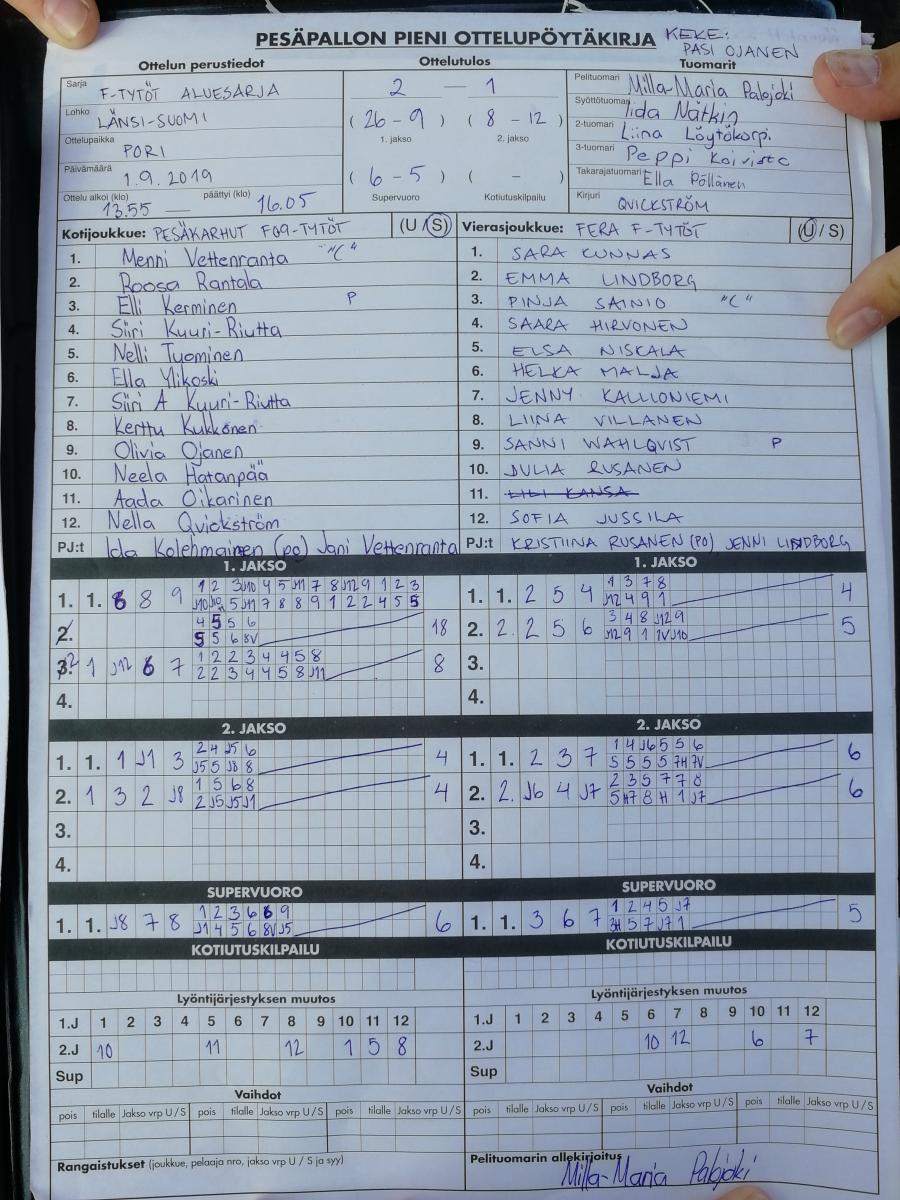 PESÄPALLON PIENI OTTELUPÖYTÄKIRJA
KEKE:
PASI OJANEN
Ottelun perustiedot
Ottelutulos
Tuomarit
Sarja F-TYTÖT ALUESARJA
Lohko LÄNSI-SUOMI
Ottelupaikka PORI
Päivämäärä 1.9.2019
Ottelu alkoi (klo) 13.55 — päättyi (klo) 16.05
2 — 1
( 26 - 9 ) ( 8 - 12 )
1. jakso 2. jakso
( 6 - 5 ) ( - )
Supervuoro Kotiutuskilpailu
Pelituomari Milla-Marja Palojoki
Syöttötuomari Iida Nätkin
2-tuomari Liina Löytökorpi
3-tuomari Peppi Koivisto
Takarajatuomari Ella Pöllänen
Kirjuri QVICKSTRÖM
Kotijoukkue: PESÄKARHUT F09-TYTÖT (U/S)
1. Menni Vettenranta "C"
2. Roosa Rantala
3. Elli Kerminen P
4. Siiri Kuuri-Riutta
5. Nelli Tuominen
6. Ella Ylikoski
7. Siiri A Kuuri-Riutta
8. Kerttu Kukkonen
9. Olivia Ojanen
10. Neela Hatanpää
11. Aada Oikarinen
12. Nella Qvickström
PJ:t Ida Kolehmainen (po) Jani Vettenranta
Vierasjoukkue: FERA F-TYTÖT (U/S)
1. SARA CUNNAS
2. EMMA LINDBORG
3. PINJA SAINIO "C"
4. SAARA HIRVONEN
5. ELSA NISKALA
6. HELKA MALJA
7. JENNY KALLIONIEMI
8. LIINA VILLANEN
9. SANNI WAHLQVIST P
10. JULIA RUSANEN
11. LILI KANSA
12. SOFIA JUSSILA
PJ:t KRISTIINA RUSANEN (PO) JENNI LINDBORG
1. JAKSO
1. 1. 6 8 9
1 2 3 J10 4 5 J11 7 8 J12 9 1 2 3
5 J11 7 8 8 9 1 2 2 4 5 5
2. 4 5 5 6
5 5 6 8V 18
3. 1 J12 6 7 1 2 2 3 4 4 5 8
2 2 3 4 4 5 8 J11 8
4.
1. JAKSO
1. 1. 2 5 4 1 3 7 8
J12 4 9 1 4
2. 2. 2 5 6 3 4 8 J12 9
J12 9 1 1V J10 5
3.
4.
2. JAKSO
1. 1. 1 J1 3 2 4 J5 6
J5 5 J8 8 4
2. 1 3 2 J8 1 5 6 8
2 J5 J5 J1 4
3.
4.
2. JAKSO
1. 1. 2 3 7 1 4 J6 5 5 6
5 5 5 5 7H 7V 6
2. 2. J6 4 J7 2 3 5 7 7 8
5 H7 8 H 1 J7 6
3.
4.
SUPERVUORO
1. 1. J8 7 8 1 2 3 6 6 9
J1 4 5 6 8V J5 6
SUPERVUORO
1. 1. 3 6 7 1 2 4 5 J7
3H 5 7 J7 1 5
KOTIUTUSKILPAILU
KOTIUTUSKILPAILU
Lyöntijärjestyksen muutos
1.J 1 2 3 4 5 6 7 8 9 10 11 12
2.J 10 11 12 1 5 8
Sup
Lyöntijärjestyksen muutos
1.J 1 2 3 4 5 6 7 8 9 10 11 12
2.J 10 12 6 7
Sup
Vaihdot
pois tilalle Jakso vrp U/S pois tilalle Jakso vrp U/S pois tilalle Jakso vrp U/S
Vaihdot
pois tilalle Jakso vrp U/S pois tilalle Jakso vrp U/S pois tilalle Jakso vrp U/S
Rangaistukset (joukkue, pelaaja nro, jakso vrp U / S ja syy)
Pelituomarin allekirjoitus
Milla-Marja Palojoki